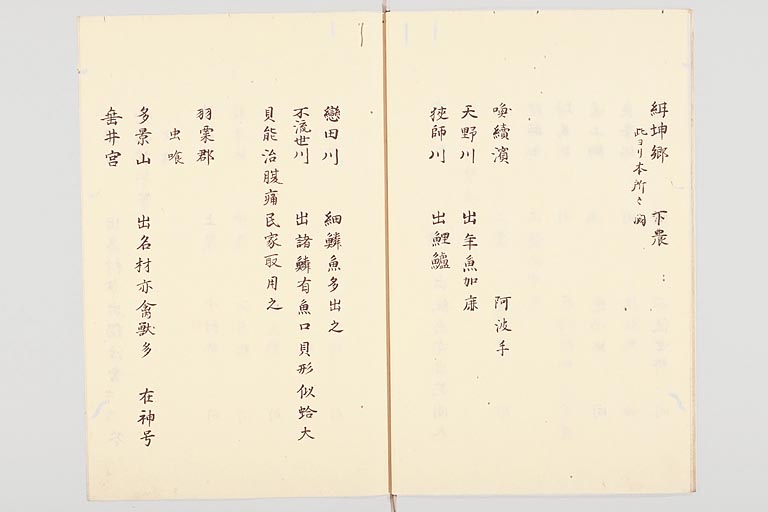 絹坤郷 下農
此ヨリ本所々闕
喚續濱 阿波手
天野川 出年魚加麻
狭師川 出鯉鱸
戀田川 細鱗魚多出之
不流世川 出諸鱗有魚口貝形似蛤大
貝能治腹痛民家取用之
羽栗郡
虫喰
多景山 出名材亦禽獣多 在神号
垂井宮